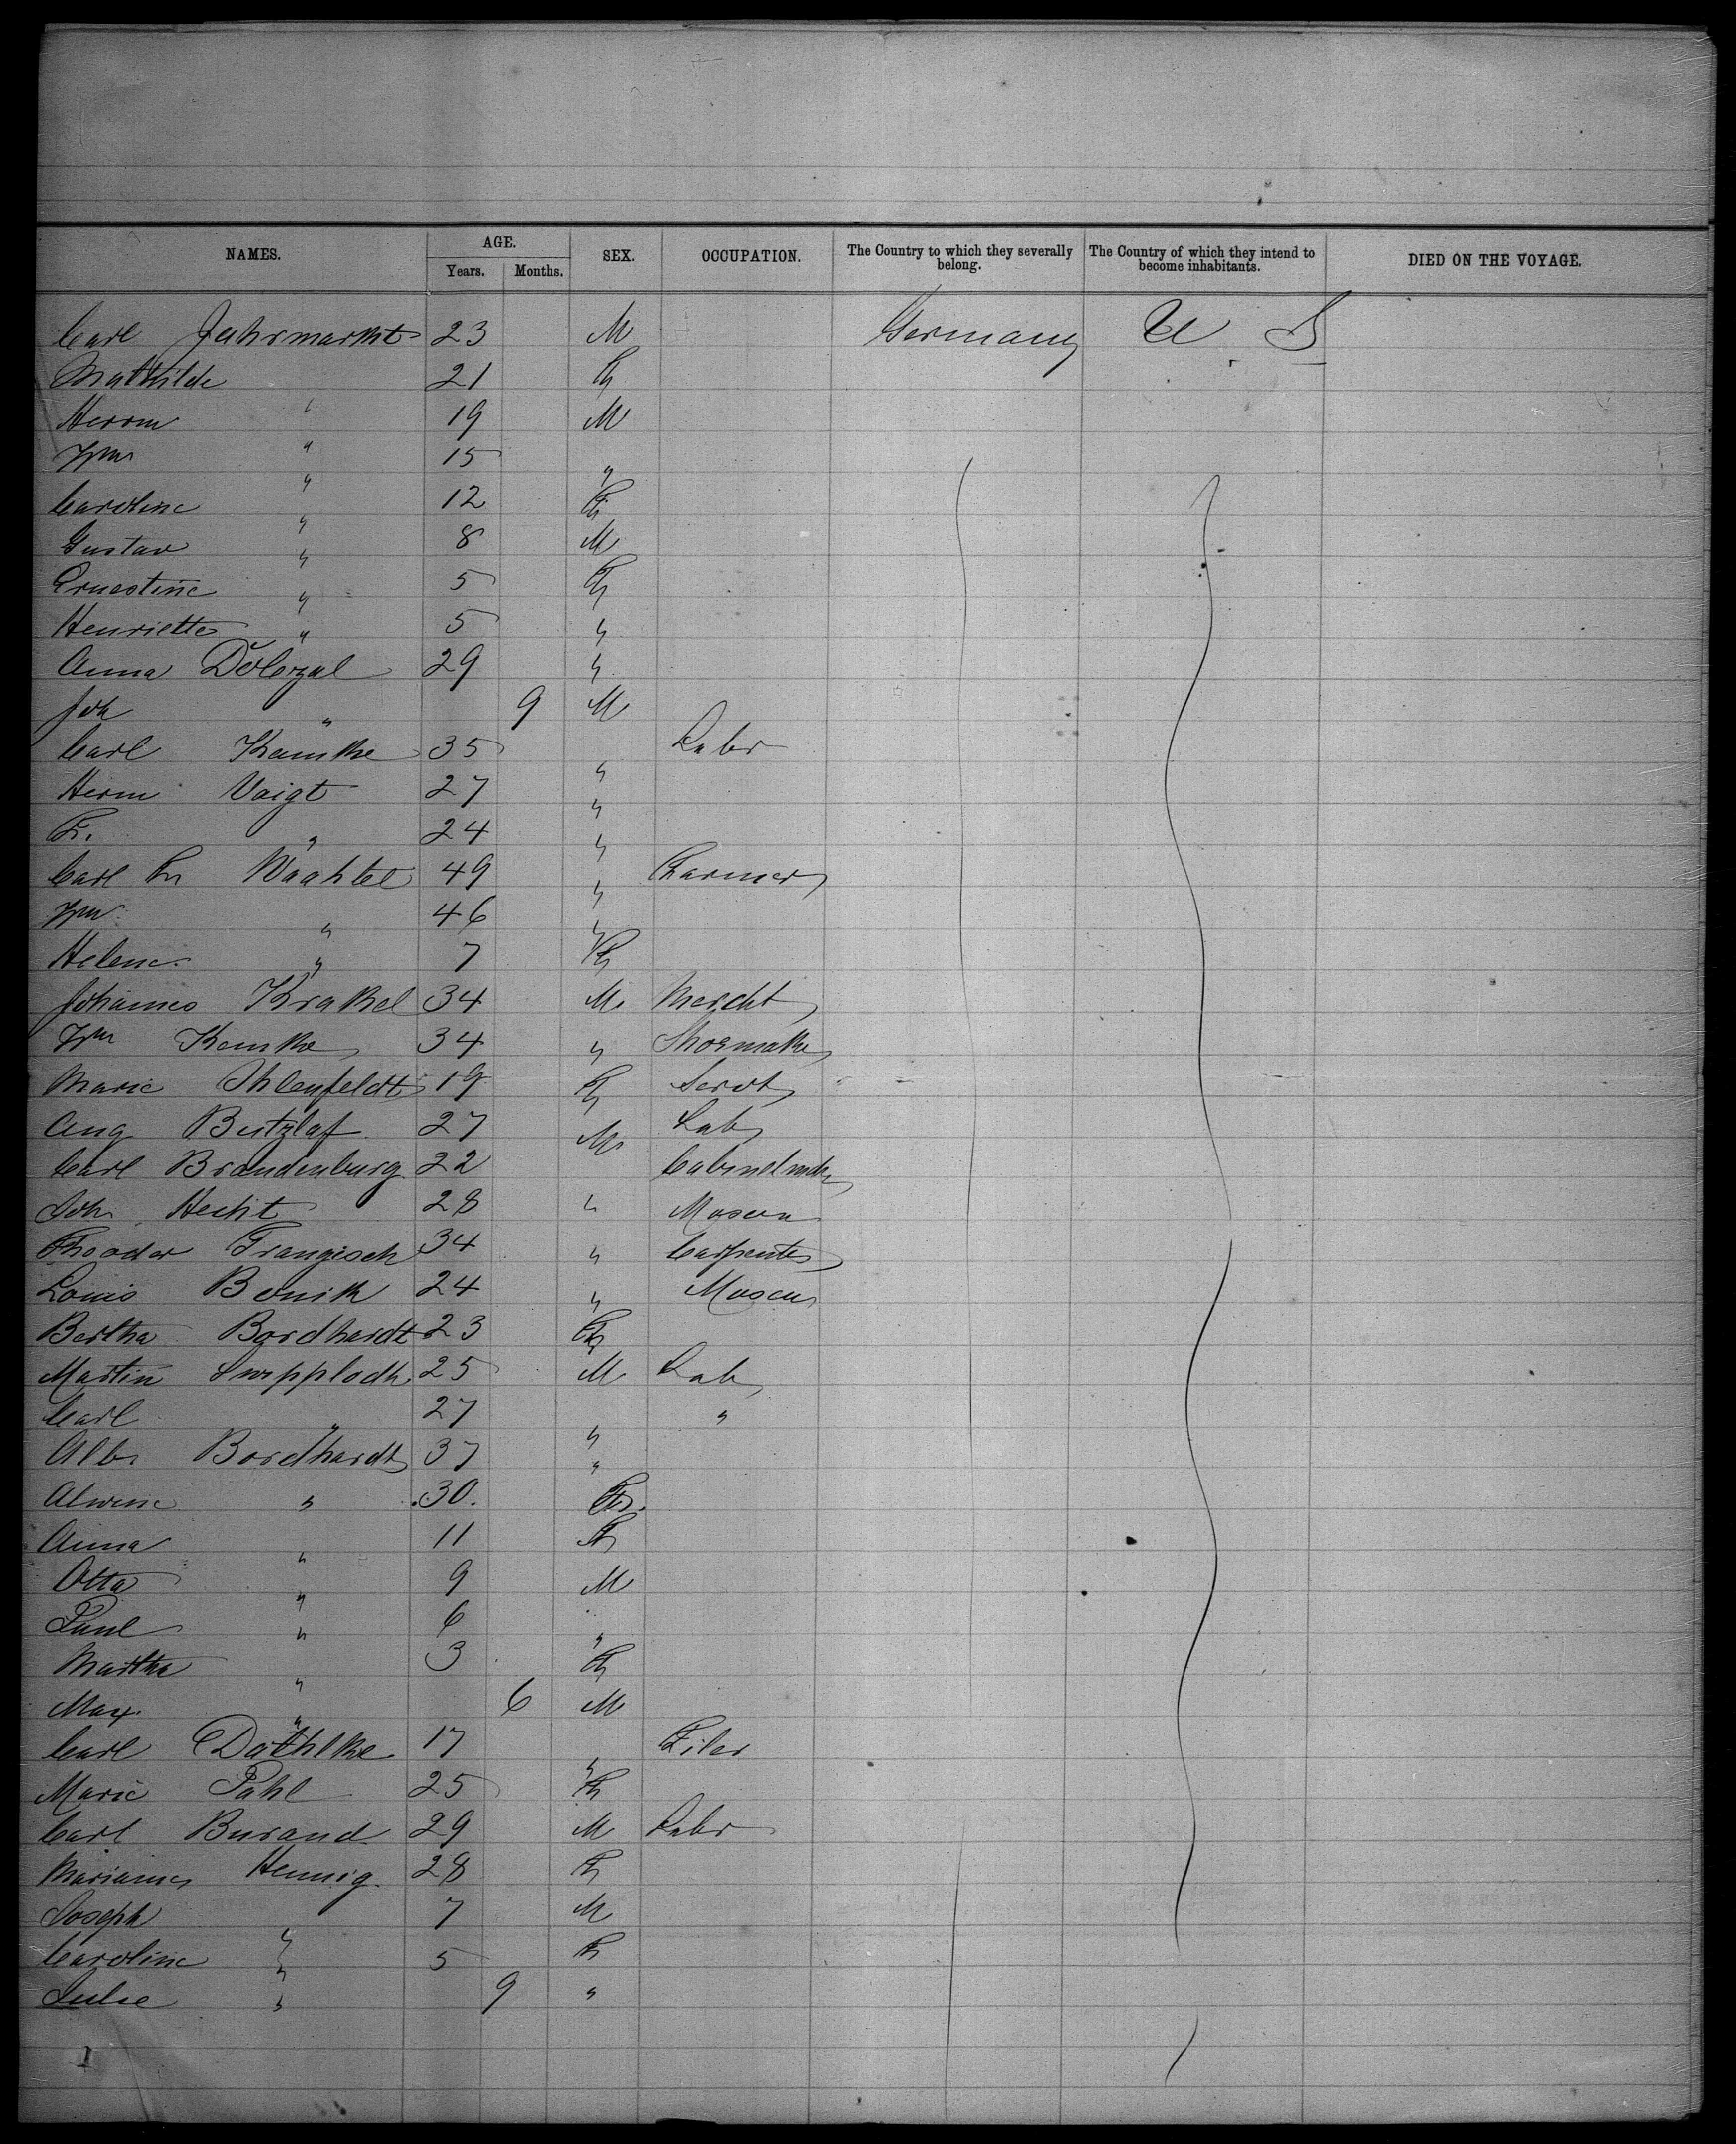 NAMES. AGE. SEX. OCCUPATION. The Country to which they severally belong. The Country of which they intend to become inhabitants. DIED ON THE VOYAGE.
Years. Months.
Carl Jahrmarkt 23 M Germany U S
Mathilde 21 F
Herrm " 19 M
Wm " 15 "
Caroline " 12 F
Gustav " 8 M
Ernestine " 5 F
Henriette " 5 "
Anna Dolezal 29 "
Joh " 9 M
Carl Kamke 35 " Labr
Herm Voigt 27 "
Fr. " 24 "
Carl Fr Waahtel 49 " Farmer
Wm " 46 "
Helene " 7 F
Johannes Krakel 34 M Mercht
Wm Kemke 34 " Shoemake
Marie Ihlenfeldt 19 F Servt
Aug Butzlaf 27 M Lab
Carl Brandenburg 22 Cabinetmkr
Joh Hecht 28 " Mason
Theodor Frangisch 34 " Carpenter
Louis Bonik 24 " Mason
Bertha Bordhardt 23 F
Martin 25 M Lab
Carl " 27 " "
Alb Bordhardt 37 "
Alwine " 30. F
Anna " 11 F
Otto " 9 M
Paul " 6 "
Martha " 3 F
Max " 6 M
Carl Dathlke 17 "
Marie Pahl 25 F
Carl Burand 29 M Labr
Marianne Hennig 28 F
Joseph " 7 M
Caroline " 5 F
Julie " 9 "